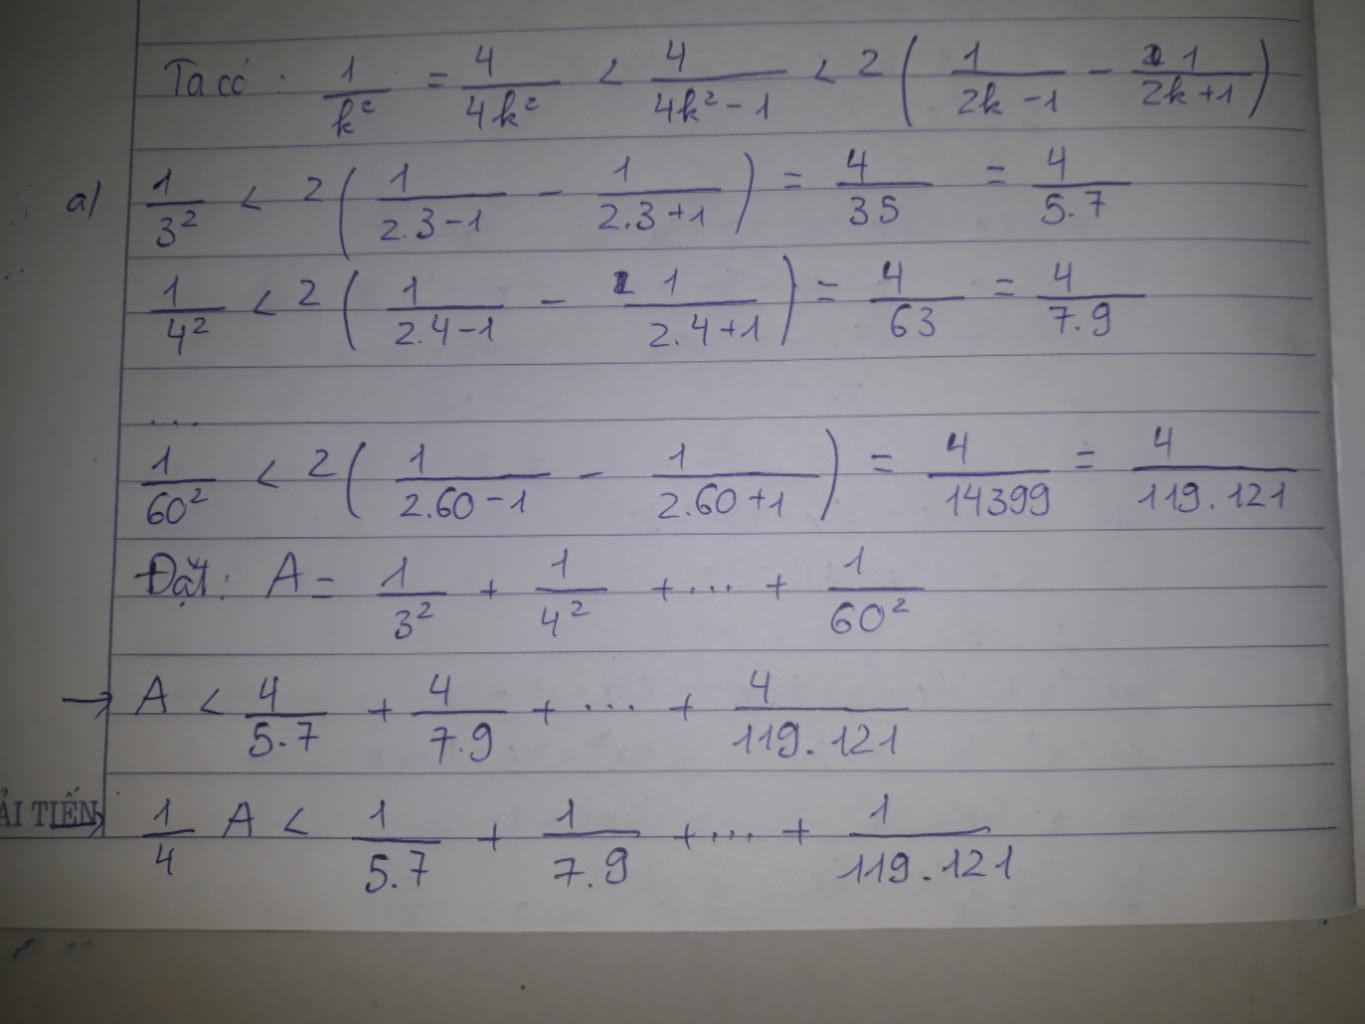 Ta có : 1/k² = 4/4k² < 4/4k² - 1 < 2 ( 1/2k - 1 - 1/2k + 1 )
a) 1/3² < 2 ( 1/2.3 - 1 - 1/2.3 + 1 ) = 4/35 = 4/5.7
1/4² < 2 ( 1/2.4 - 1 - 1/2.4 + 1 ) = 4/63 = 4/7.9
...
1/60² < 2 ( 1/2.60 - 1 - 1/2.60 + 1 ) = 4/14399 = 4/119.121
Đặt : A = 1/3² + 1/4² + ... + 1/60²
→ A < 4/5.7 + 4/7.9 + ... + 4/119.121
ẢI TIẾN → 1/4 A < 1/5.7 + 1/7.9 + ... + 1/119.121